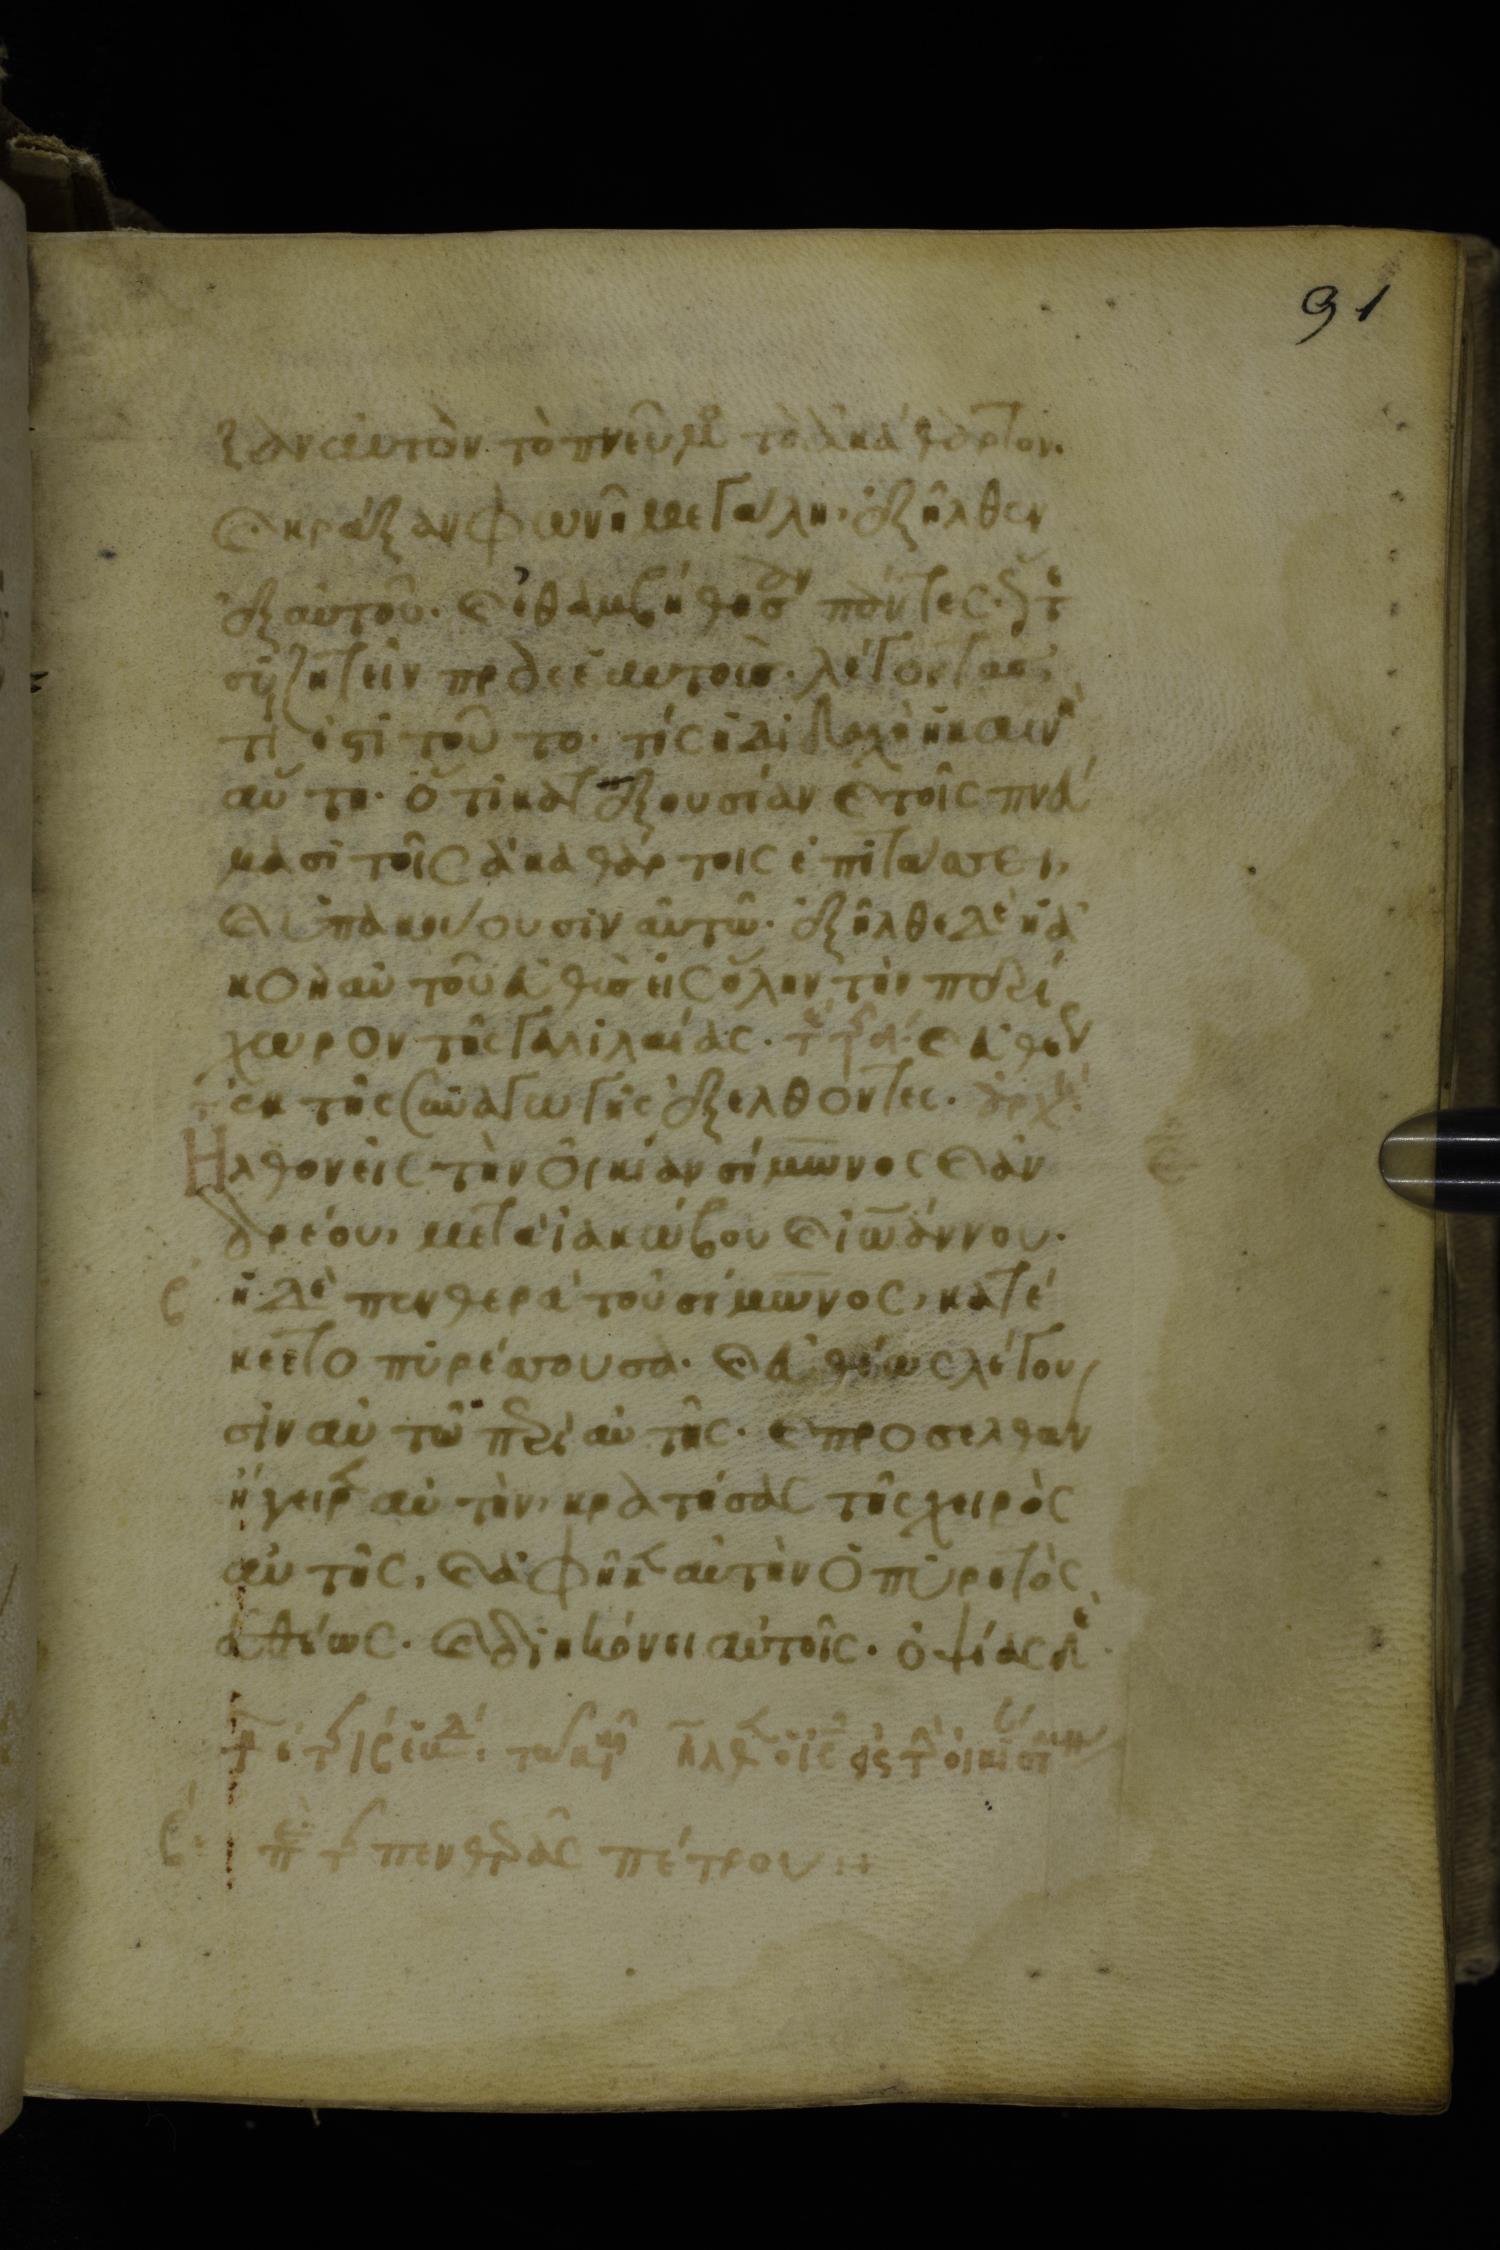 91
ξαν αυτὸν τὸ πνεῦμα τὸ ἀκάθαρτον.
καὶ κράξαν φωνῆ μεγάλη. ἐξῆλθεν
ἐξ αὐτοῦ. καὶ ἐθαμβήθησαν πάντες. ὥστε
συζητεῖν πρὸς ἑαυτοὺς. λέγοντας,
τί ἐστι τοῦτο. τίς ἡ διδαχὴ ἡ καινὴ
αὕτη. ὅτι κατ ἐξουσίαν καὶ τοῖς πνεύ
μασι τοῖς ἀκαθάρτοις ἐπιτάσσει,
καὶ ὑπακούουσιν αὐτῶ. ἐξῆλθε δὲ ἡ ἀ
κοὴ αὐτοῦ εὐθὺς εἰς ὅλην τὴν περί
χωρον τῆς Γαλιλαίας. καὶ εὐθέως
ἐκ τῆς συναγωγῆς ἐξελθόντες. ἀρχ
Ηλθον εἰς τὴν οἰκίαν σίμωνος καὶ ἀν
δρέου, μετὰ ἰακώβου καὶ ἰωάννου.
ἡ δὲ πενθερὰ τοῦ σίμωνος, κατέ
κειτο πυρέσσουσα. καὶ εὐθέως λέγου
σιν αὐτῶ περὶ αὐτῆς. καὶ προσελθὼν
ἤγειρεν αὐτὴν, κρατήσας τῆς χειρὸς
αὐτῆς, καὶ ἀφῆκεν αὐτὴν ὁ πυρετὸς
εὐθέως. καὶ διηκόνει αὐτοῖς. ὀψίας δὲ
περὶ τῆς πενθερᾶς πέτρου